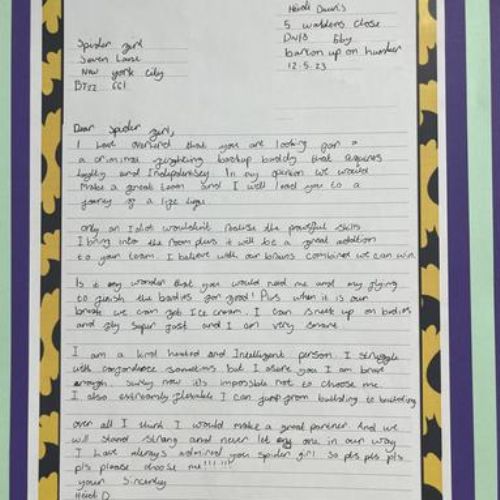 Heidi Davis
5 walders close
DN18 6by
barton up on humber
12.5.23
Spider girl
Seven Lane
New york City
BTZZ 661
Dear Spider girl,
I have overherd that you are looking for a
a criminal fighting backup buddy that requires
loyalty and Independency. In my opinion we would
Make a great team and I will lead you to a
journey of a life
only an Idiot wouldn't realise the powerful skills
I bring into the room plus it will be a great addition
to your team. I believe with our brains combined we can win.
Is it any wonder that you would need me and my flying
to finish the badies for good! Plus when it is our
break we can get Ice cream. I can sneek up on badies
and fly super fast and I am very smart.
I am a kind hearted and Intelligent person. I struggle
with sometims but I asure you I am brave
enough. Surley now it's impossible not to choose me.
I also extreamly flexable I can jump from building to building
over all I think I would make a great partner. And we
will stand strong and never let any one in our way
I have always admired you spider girl so pls pls pls
pls please choose me!!!!!!
your Sincerley
Heidi D